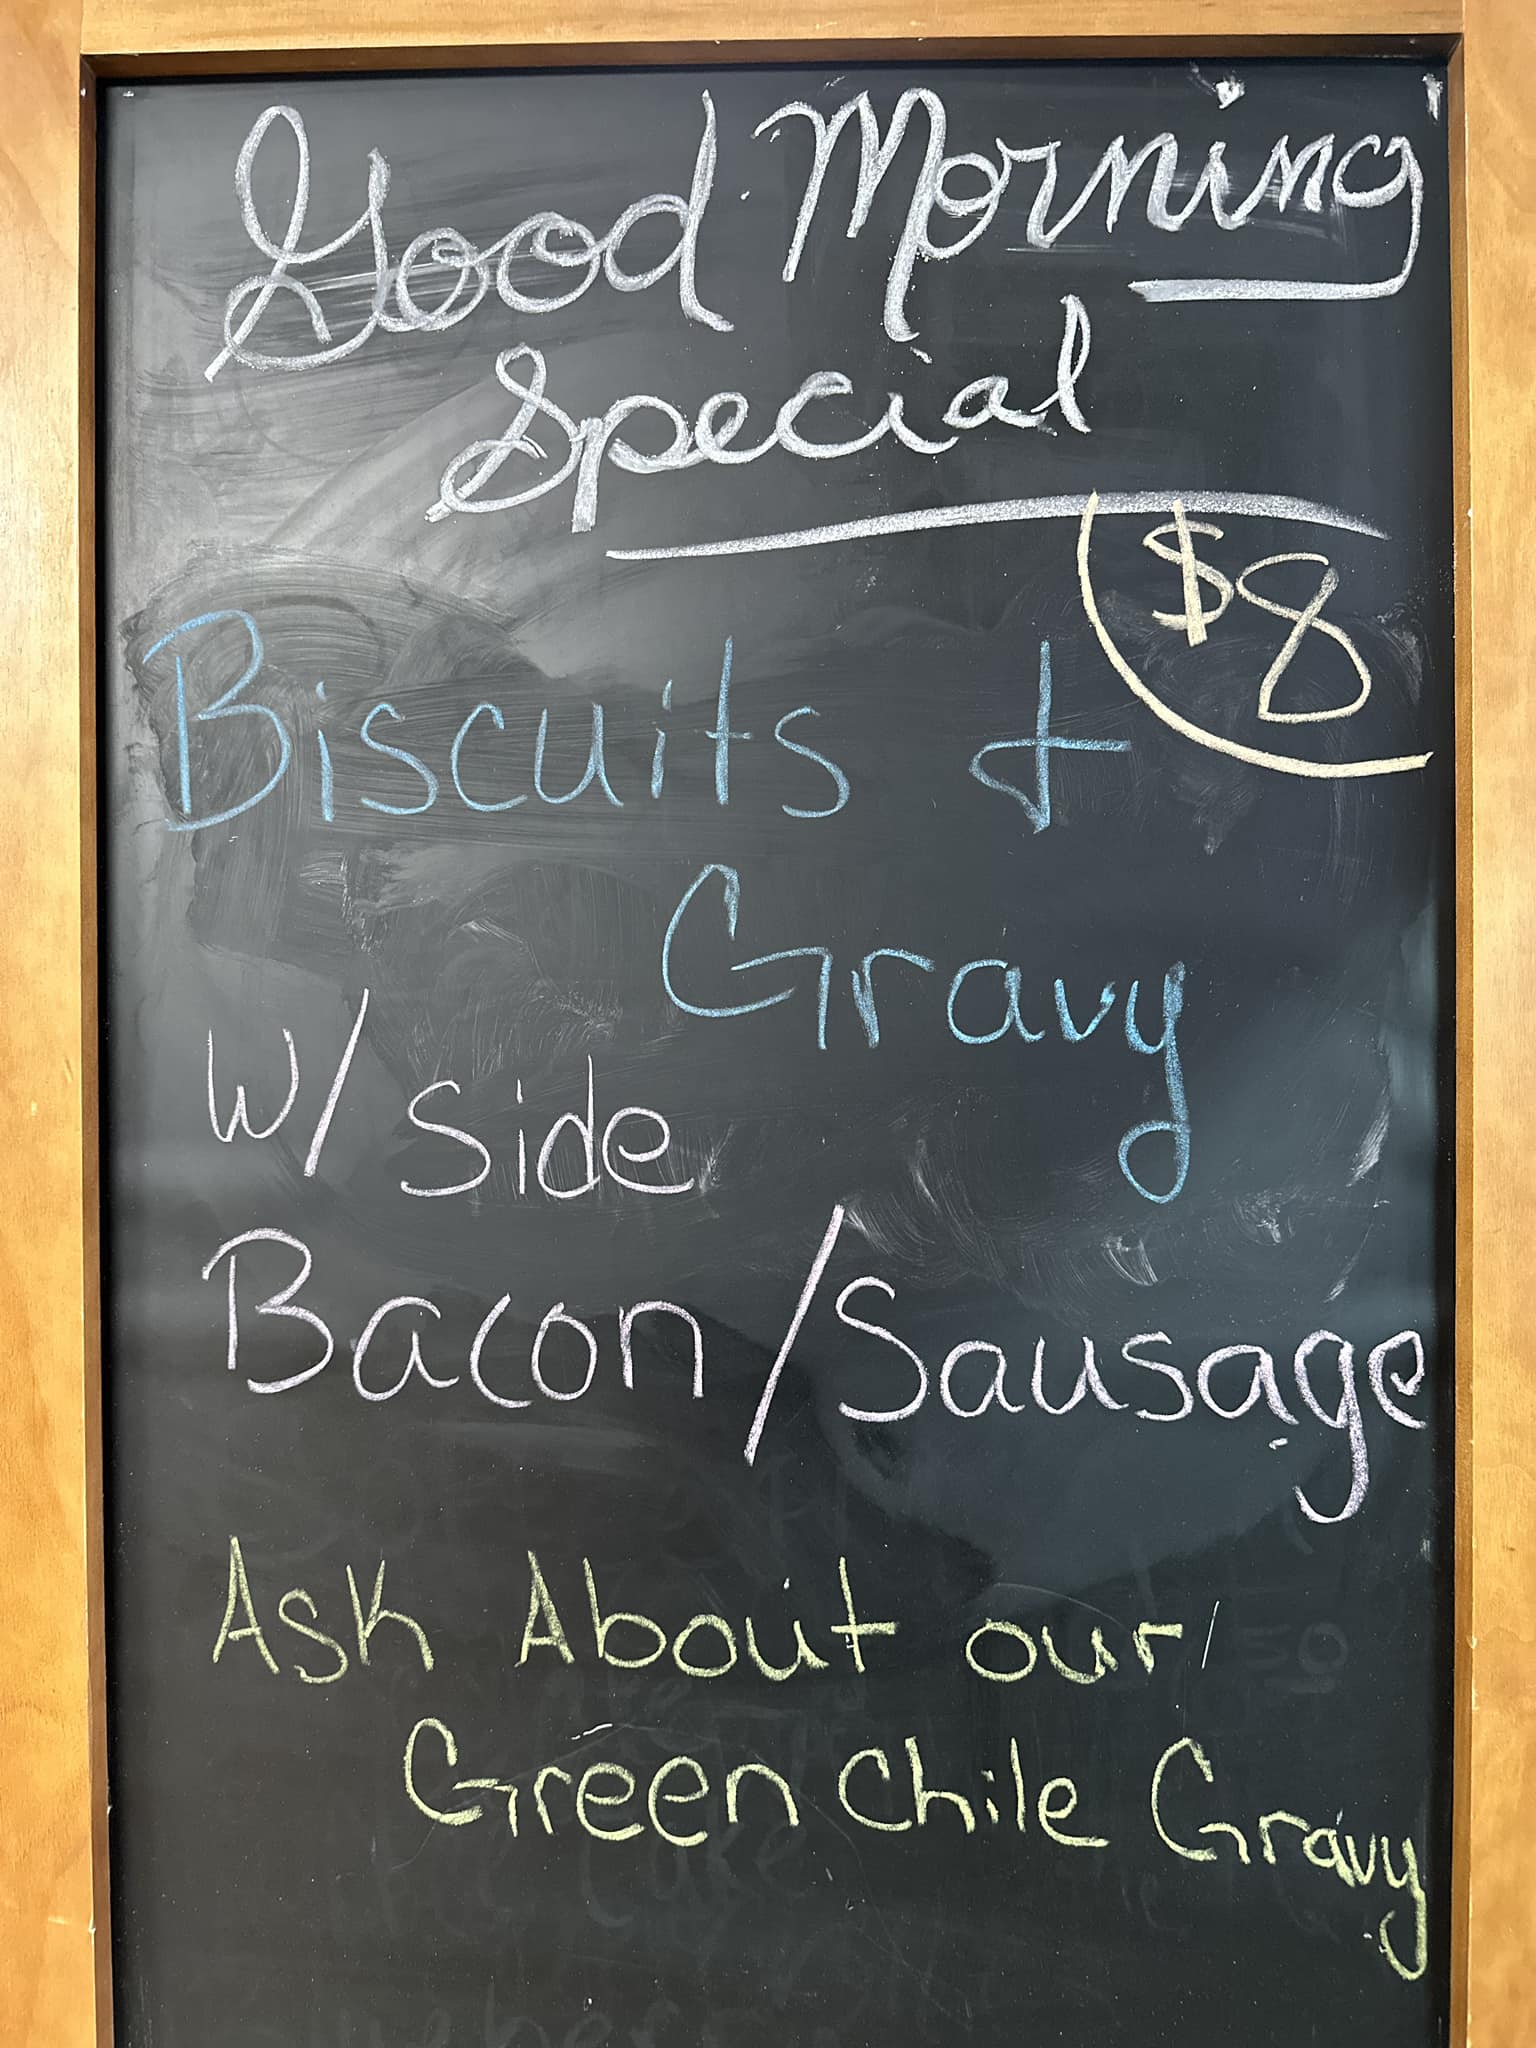 Good Morning
Special
$8
Biscuits &
Gravy
W/ Side
Bacon/Sausage
Ask About our
Green Chile Gravy